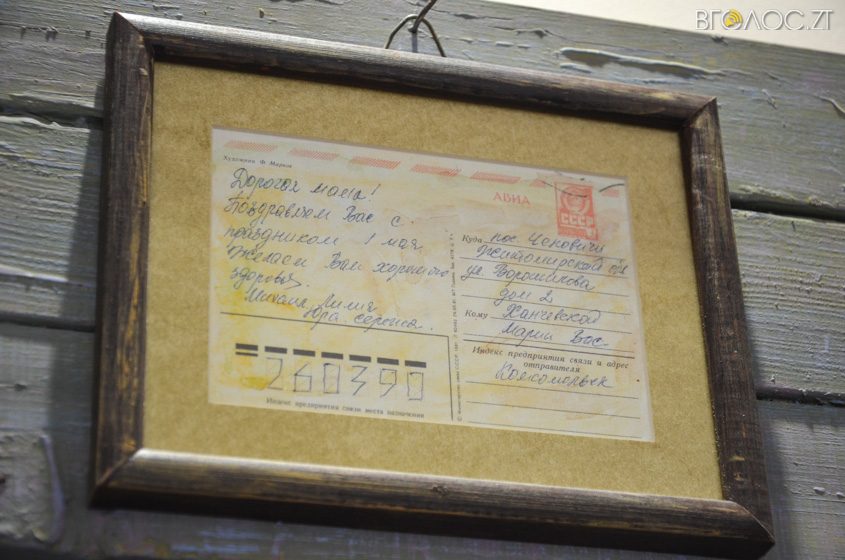 ВГОЛОС.ZT
Художник Ф. Марков
АВИА
СССР
Дорогая мама!
Поздравляем Вас с
праздником 1 мая
Желаем Вам хорошего
здоровья.
Михаил Лилия
Юра Сережа.
260390
Индекс предприятия связи места назначения
Куда пос. Ченовичи
Житомирской обл
ул. Ворошилова
дом 2
Кому Ханчевской
Марии Вас.
Индекс предприятия связи и адрес
отправителя
Комсомольск